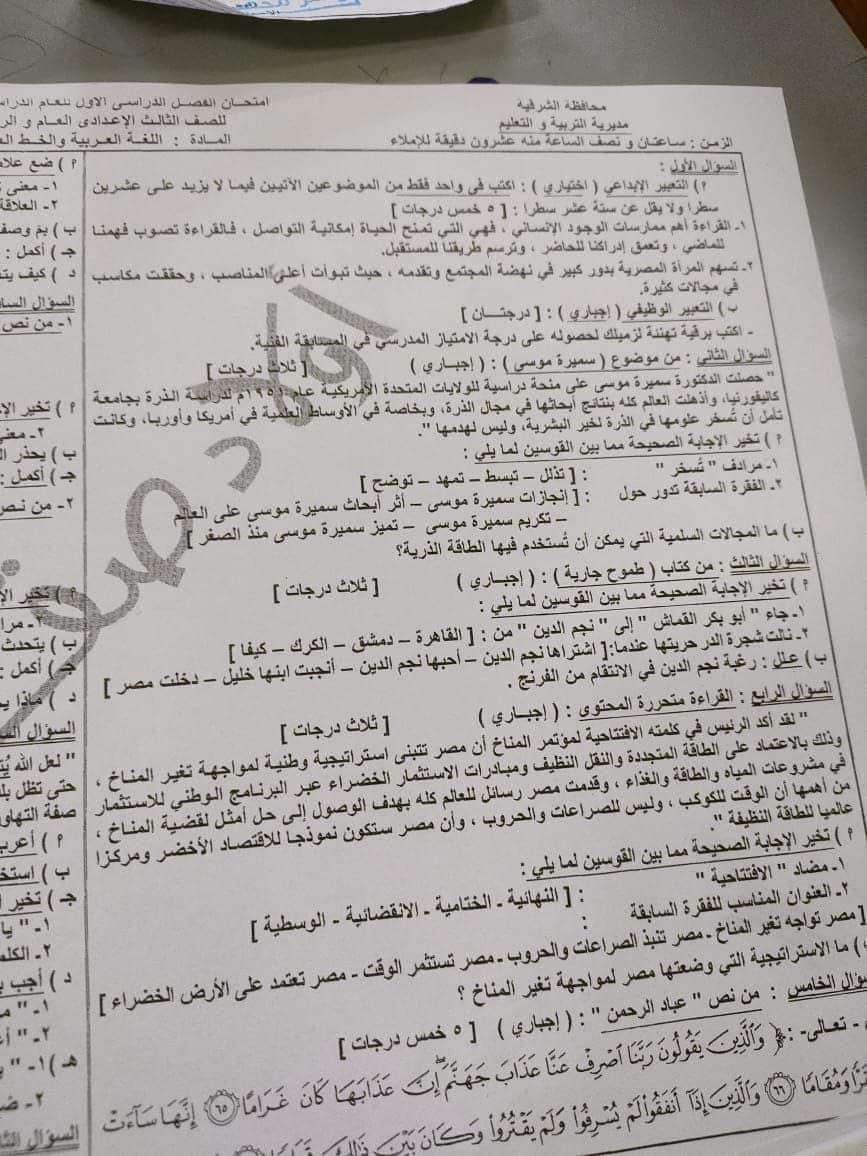 محافظة الشرقية
مديرية التربية و التعليم
الزمن : ساعتان و نصف الساعة منه عشرون دقيقة للإملاء
امتحان الفصل الدراسى الأول للعام
للصف الثالث الإعدادى العام و
المادة : اللغة العربية والخط
السؤال الأول :
٩) التعبير الإبداعي ( اختياري ) : اكتب في واحد فقط من الموضوعين الآتيين فيما لا يزيد على عشرين
سطرا ولا يقل عن ستة عشر سطرا : [ ٥ خمس درجات ]
١- القراءة أهم ممارسات الوجود الإنساني ، فهي التي تمنح الحياة إمكانية التواصل ، فالقراءة تصوب فهمنا
للماضي ، وتعمق إدراكنا للحاضر ، وترسم طريقنا للمستقبل.
٢- تسهم المرأة المصرية بدور كبير في نهضة المجتمع وتقدمه ، حيث تبوأت أعلى المناصب ، وحققت مكاسب
في مجالات كثيرة.
ب ) التعبير الوظيفي ( إجباري ) : [ درجتــان ]
- اكتب برقية تهنئة لزميلك لحصوله على درجة الامتياز المدرسي في المسابقة الفنية.
السؤال الثاني : من موضوع ( سميرة موسى ) : ( إجبــاري ) [ ثلاث درجات ]
" حصلت الدكتورة سميرة موسى على منحة دراسية للولايات المتحدة الأمريكية عام ١٩٥١م لدراسة الذرة بجامعة
كاليفورنيا، وأذهلت العالم كله بنتائج أبحاثها في مجال الذرة، وبخاصة في الأوساط العلمية في أمريكا وأوربا، وكانت
تأمل أن تُسخر علومها في الذرة لخير البشرية، وليس لهدمها ".
٩ ) تخير الإجابة الصحيحة مما بين القوسين لما يلي :
١- مرادف " تُسخر " : [ تذلل – تبسط – تمهد – توضح ]
٢- الفقرة السابقة تدور حول : [ إنجازات سميرة موسى – أثر أبحاث سميرة موسى على العالم
– تكريم سميرة موسى – تميز سميرة موسى منذ الصغر ]
ب ) ما المجالات السلمية التي يمكن أن تُستخدم فيها الطاقة الذرية؟
السؤال الثالث : من كتاب ( طموح جارية ) : ( إجبــاري ) [ ثلاث درجات ]
٩ ) تخير الإجابة الصحيحة مما بين القوسين لما يلي :
١- جاء " أبو بكر القماش " إلى " نجم الدين " من : [ القاهرة – دمشق – الكرك – كيفا ]
٢- نالت شجرة الدر حريتها عندما:[ اشتراها نجم الدين – أحبها نجم الدين – أنجبت ابنها خليل – دخلت مصر ]
ب ) علل : رغبة نجم الدين في الانتقام من الفرنج .
السؤال الرابع : القراءة متحررة المحتوى : ( إجباري ) [ ثلاث درجات ]
" لقد أكد الرئيس في كلمته الافتتاحية لمؤتمر المناخ أن مصر تتبنى استراتيجية وطنية لمواجهة تغير المناخ ،
وذلك بالاعتماد على الطاقة المتجددة والنقل النظيف ومبادرات الاستثمار الخضراء عبر البرنامج الوطني للاستثمار
في مشروعات المياه والطاقة والغذاء ، وقدمت مصر رسائل للعالم كله بهدف الوصول إلى حل أمثل لقضية المناخ ،
من أهمها أن الوقت للكوكب ، وليس للصراعات والحروب ، وأن مصر ستكون نموذجا للاقتصاد الأخضر ومركزا
عالميا للطاقة النظيفة ".
٩ ) تخير الإجابة الصحيحة مما بين القوسين لما يلي :
١- مضاد " الافتتاحية " : [ النهائية - الختامية - الانقضائية - الوسطية ]
٢- العنوان المناسب للفقرة السابقة :
[ مصر تواجه تغير المناخ - مصر تنبذ الصراعات والحروب - مصر تستثمر الوقت - مصر تعتمد على الأرض الخضراء ]
) ما الاستراتيجية التي وضعتها مصر لمواجهة تغير المناخ ؟
الخامس : من نص " عباد الرحمن " : ( إجباري ) [ ٥ خمس درجات ]
- تعالى- : ﴿ وَالَّذِينَ يَقُولُونَ رَبَّنَا اصْرِفْ عَنَّا عَذَابَ جَهَنَّمَ إِنَّ عَذَابَهَا كَانَ غَرَامًا ﴿٦٥﴾ إِنَّهَا سَآءَتْ
وَمُقَامًا ﴿٦٦﴾ وَالَّذِينَ إِذَا أَنفَقُوا لَمْ يُسْرِفُوا وَلَمْ يَقْتُرُوا وَكَانَ بَيْنَ ذَٰلِكَ
٩ ) ضع
١- معنى
٢- العلاقة
ب ) بم وصف
جـ ) أكمل :
د ) كيف
السؤال
١- من نص
٩ ) تخير
٢- معنى
ب ) يحذر
جـ ) أكمل :
٢- من نص
٩ ) تخير
ب ) يتحدث
جـ ) أكمل :
د ) ماذا
السؤال
" لعل الله
حتى تظل
صفة
٩ ) أعرب
ب )
جـ ) تخير
١- " يا
٢-
د ) أجب
١- "
٢- "
هـ ) ١- "
٢-
السؤال